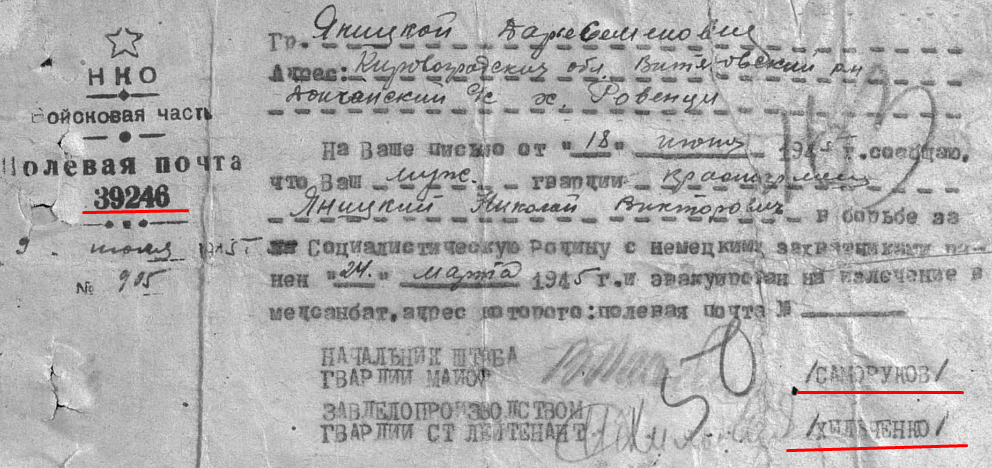 НКО
Войсковая часть
Полевая почта
39246
9 июля 1945 г.
№ 905
Гр. Яницкой Дарье Семеновне
Адрес: Кировоградская обл. Витязевский р-н
с/с х. Ровенци
На Ваше письмо от "18" июня 1945 г. сообщаю,
что Ваш муж. гвардии красноармеец
Яницкий Николай Викторович в борьбе за
Социалистическую Родину с немецкими захватчиками ра-
нен "24." марта 1945 г. и эвакуирован на излечение в
медсанбат, адрес которого: полевая почта №
НАЧАЛЬНИК ШТАБА
ГВАРДИИ МАЙОР /САМОРУКОВ/
ЗАВДЕЛОПРОИЗВОДСТВОМ
ГВАРДИИ СТ ЛЕЙТЕНАНТ /ХИЛЬЧЕНКО/